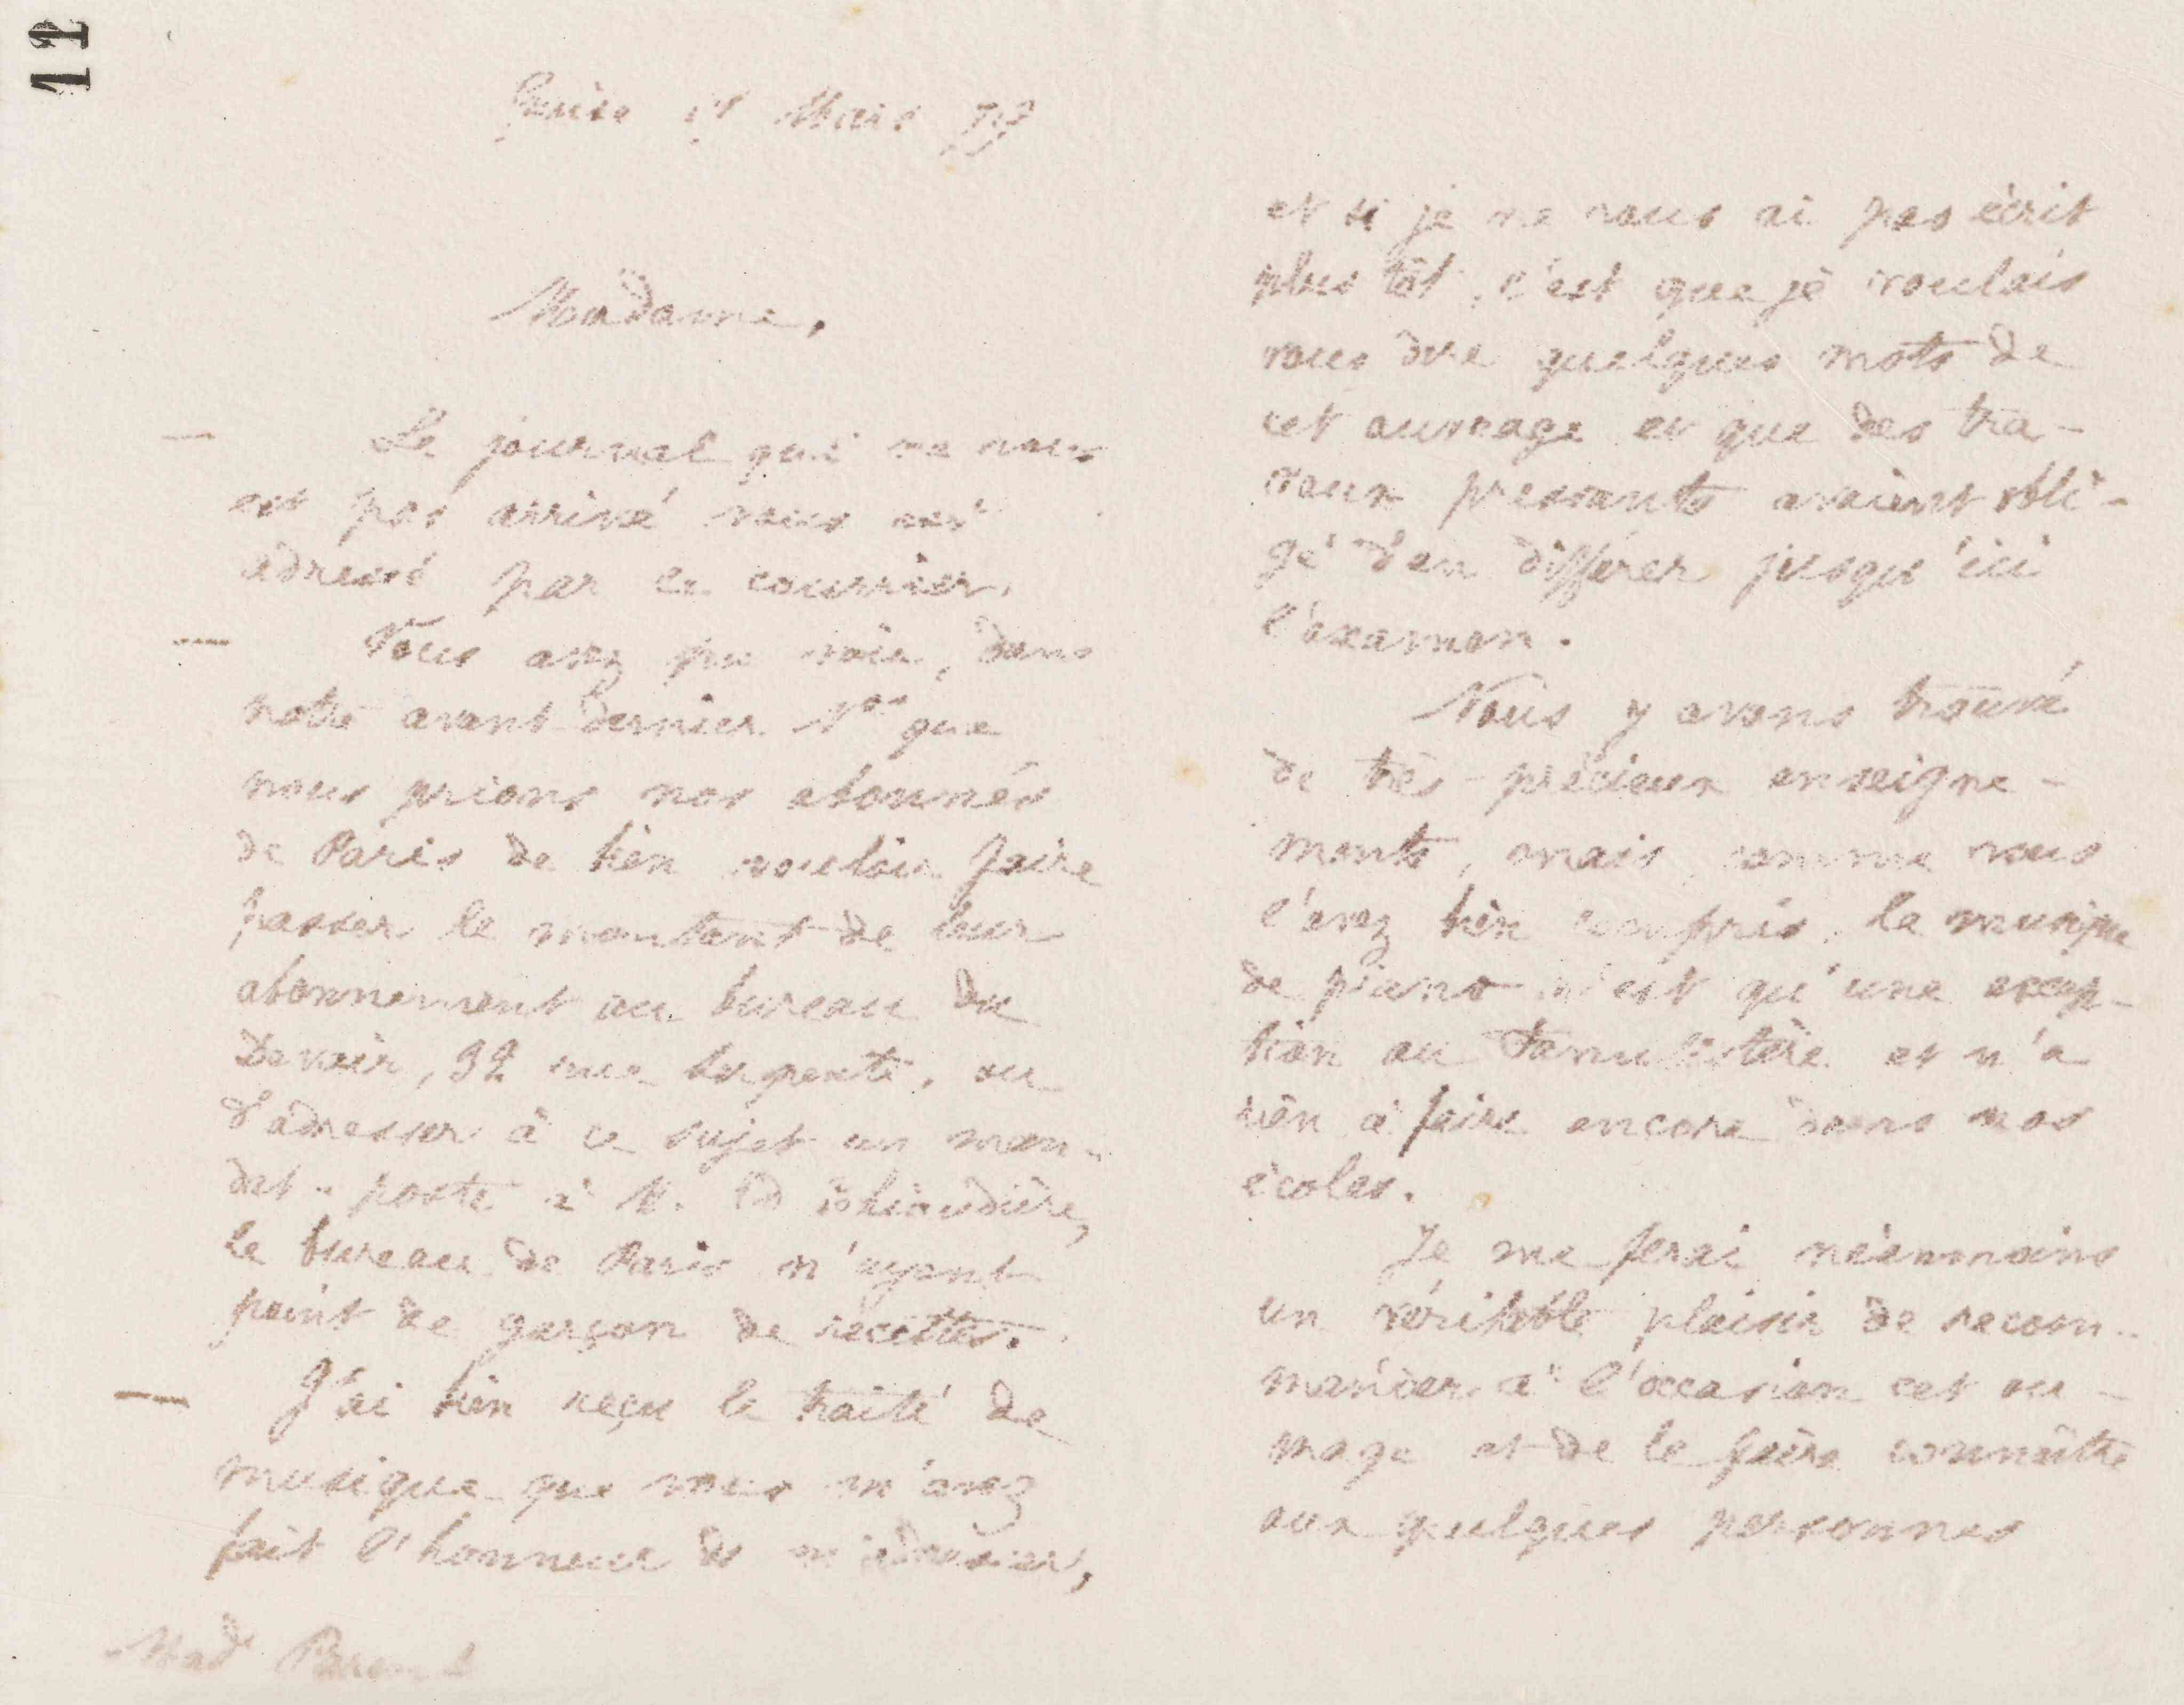 12
Guise 1er Mars 79
Madame,
Le journal qui ne vous
est pas arrivé vous est
adressé par ce courrier.
Vous avez pu voir, dans
notre avant dernier No que
nous prions nos abonnés
de Paris de bien vouloir faire
passer le montant de leur
abonnement au bureau du
Devoir, rue ou
d'adresser à ce sujet un man-
dat-poste à M. Ed Chiaudière,
le bureau de Paris n'ayant
point de garçon de recettes.
J'ai bien reçu le traité de
musique que vous m'avez
fait l'honneur de m'adresser,
Made Parent
et si je ne vous ai pas écrit
plus tôt, c'est que je voulais
vous dire quelques mots de
cet ouvrage et que des tra-
vaux pressants avaient obli-
gé d'en différer jusqu'ici
l'examen.
Nous y avons trouvé
de très-précieux enseigne-
ments, mais, comme vous
l'avez bien compris, la musique
de piano n'est qu'une excep-
tion au Familistère et n'a
rien à faire encore dans nos
écoles.
Je me ferai néanmoins
un véritable plaisir de recom-
mander à l'occasion cet ou-
vrage et de le faire connaître
aux quelques personnes